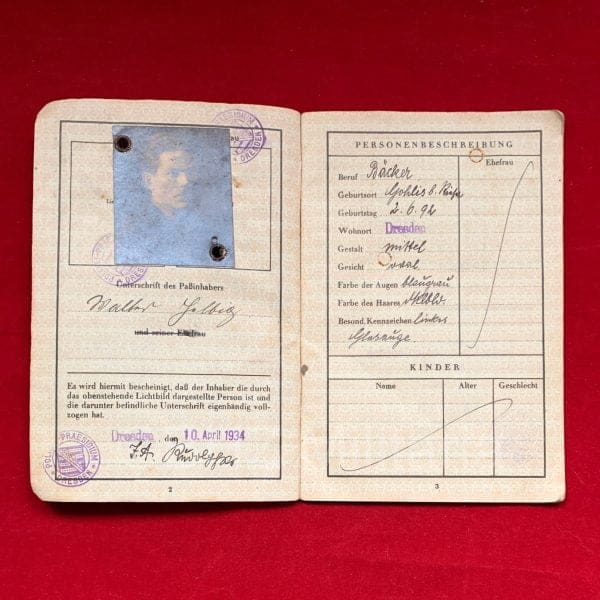 Unterschrift des Paßinhabers
Walter Helbig
und seiner Ehefrau
Es wird hiermit bescheinigt, daß der Inhaber die durch
das obenstehende Lichtbild dargestellte Person ist und
die darunter befindliche Unterschrift eigenhändig voll-
zogen hat.
Dresden, den 10. April 1934
J.A.
POL. PRAESIDIUM
DRESDEN
2
PERSONENBESCHREIBUNG
Ehefrau
Beruf Bäcker
Geburtsort Gohlis b.
Geburtstag 2.6.92
Wohnort Dresden
Gestalt mittel
Gesicht oval
Farbe der Augen blaugrau
Farbe des Haares dklbld.
Besond. Kennzeichen linkes
Glasauge.
KINDER
Name Alter Geschlecht
3